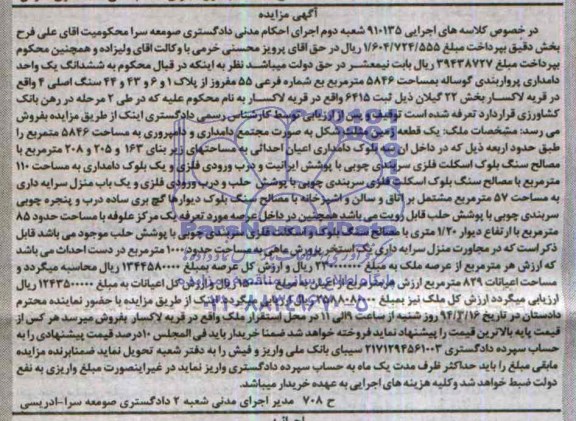 آگهی مزایده
در خصوص کلاسه های اجرایی ۹۱۰۱۳۵ شعبه دوم اجرای احکام مدنی دادگستری صومعه سرا محکومیت آقای علی فرح
بخش دقیق بپرداخت مبلغ ۱/۶۰۴/۷۲۴/۵۵۵ ریال در حق آقای پرویز محسنی خرمی با وکالت آقای ولیزاده و همچنین محکوم
بپرداخت مبلغ ۳۹۴۳۸۷۲۷ ریال بابت نیمعشر در حق دولت میباشد نظر به اینکه در قبال محکوم به ششدانگ یک واحد
دامداری پرواربندی گوساله بمساحت ۵۸۴۶ مترمربع به شماره فرعی ۵۵ مفروز از پلاک ۱ و ۶ و ۴۳ و ۴۴ سنگ اصلی ۴ واقع
در قریه لاکسار بخش ۲۲ گیلان ذیل ثبت ۶۴۱۵ واقع در قریه لاکسار به نام محکوم علیه که در طی ۲ مرحله در رهن بانک
کشاورزی قرار دارد تعرفه شده است توقیف و پس از ارزیابی توسط کارشناس رسمی دادگستری اینک از طریق مزایده بفروش
می رسد: مشخصات ملک: یک قطعه زمین مثلث شکل به صورت مجتمع دامداری و دامپروری به مساحت ۵۸۴۶ مترمربع را
طبق حدود اربعه ذیل که در داخل آن سه بلوک دامداری اعیان احداثی به مساحتهای زیر بنای ۱۶۳ و ۲۰۵ و ۲۰۸ مترمربع با
مصالح سنگ بلوک اسکلت فلزی سربندی چوبی با پوشش ایرانیت و درب ورودی فلزی و یک بلوک دامداری به مساحت ۱۱۰
مترمربع با مصالح سنگ بلوک اسکلت فلزی سربندی چوبی با پوشش حلب و درب ورودی فلزی و یک باب منزل سرایه داری
به مساحت ۵۷ مترمربع مشتمل بر اتاق و سالن و آشپزخانه با مصالح سنگ بلوک دیوارها گچ بری ساده درب و پنجره چوبی
سربندی چوبی با پوشش حلب قابل رویت می باشد همچنین در داخل عرصه مورد تعرفه یک مرکز علوفه با مساحت حدود ۸۵
مترمربع با ارتفاع دیوار ۱/۲۰ متری با مصالح سنگ بلوک و اسکلت فلزی سربندی چوبی با پوشش حلب موجود می باشد قابل
ذکر است که در مجاورت منزل سرایه داری یک استخر پرورش ماهی به مساحت حدود ۱۰۰۰ مترمربع در دست احداث می باشد
که ارزش هر مترمربع از عرصه ملک به مبلغ ریال و ارزش کل عرصه بمبلغ ۱۳۴۴۵۸۰۰۰۰ ریال محاسبه میگردد و
مساحت اعیانات ۸۲۹ مترمربع ارزش اعیانات به مبلغ ریال ارزش کل اعیانات به مبلغ ۱۲۴۳۵۰۰۰۰۰ ریال
ارزیابی میگردد ارزش کل ملک نیز بمبلغ ۲۵۸۸۰۸۰۰۰۰ ریال میگردد اینک از طریق مزایده با حضور نماینده محترم
دادستان در تاریخ ۹۴/۳/۱۶ روز شنبه از ساعت ۹ الی ۱۱ در محل استقرار ملک واقع در قریه لاکسار بفروش میرسد هر کس از
قیمت پایه بالاترین قیمت را پیشنهاد نماید فروخته خواهد شد ضمنا خریدار باید فی المجلس ۱۰درصد قیمت پیشنهادی را به
حساب سپرده دادگستری ۲۱۷۱۲۹۴۵۶۱۰۰۳ سیبای بانک ملی واریز و فیش را به دفتر شعبه تحویل نماید ضمنا برنده مزایده
مابقی مبلغ را باید حداکثر ظرف مدت یک ماه به حساب سپرده دادگستری واریز نماید در غیر اینصورت مبلغ واریزی به نفع
دولت ضبط خواهد شد و کلیه هزینه های اجرایی به عهده خریدار میباشد.
ح ۷۰۸ مدیر اجرای مدنی شعبه ۲ دادگستری صومعه سرا-ادریسی